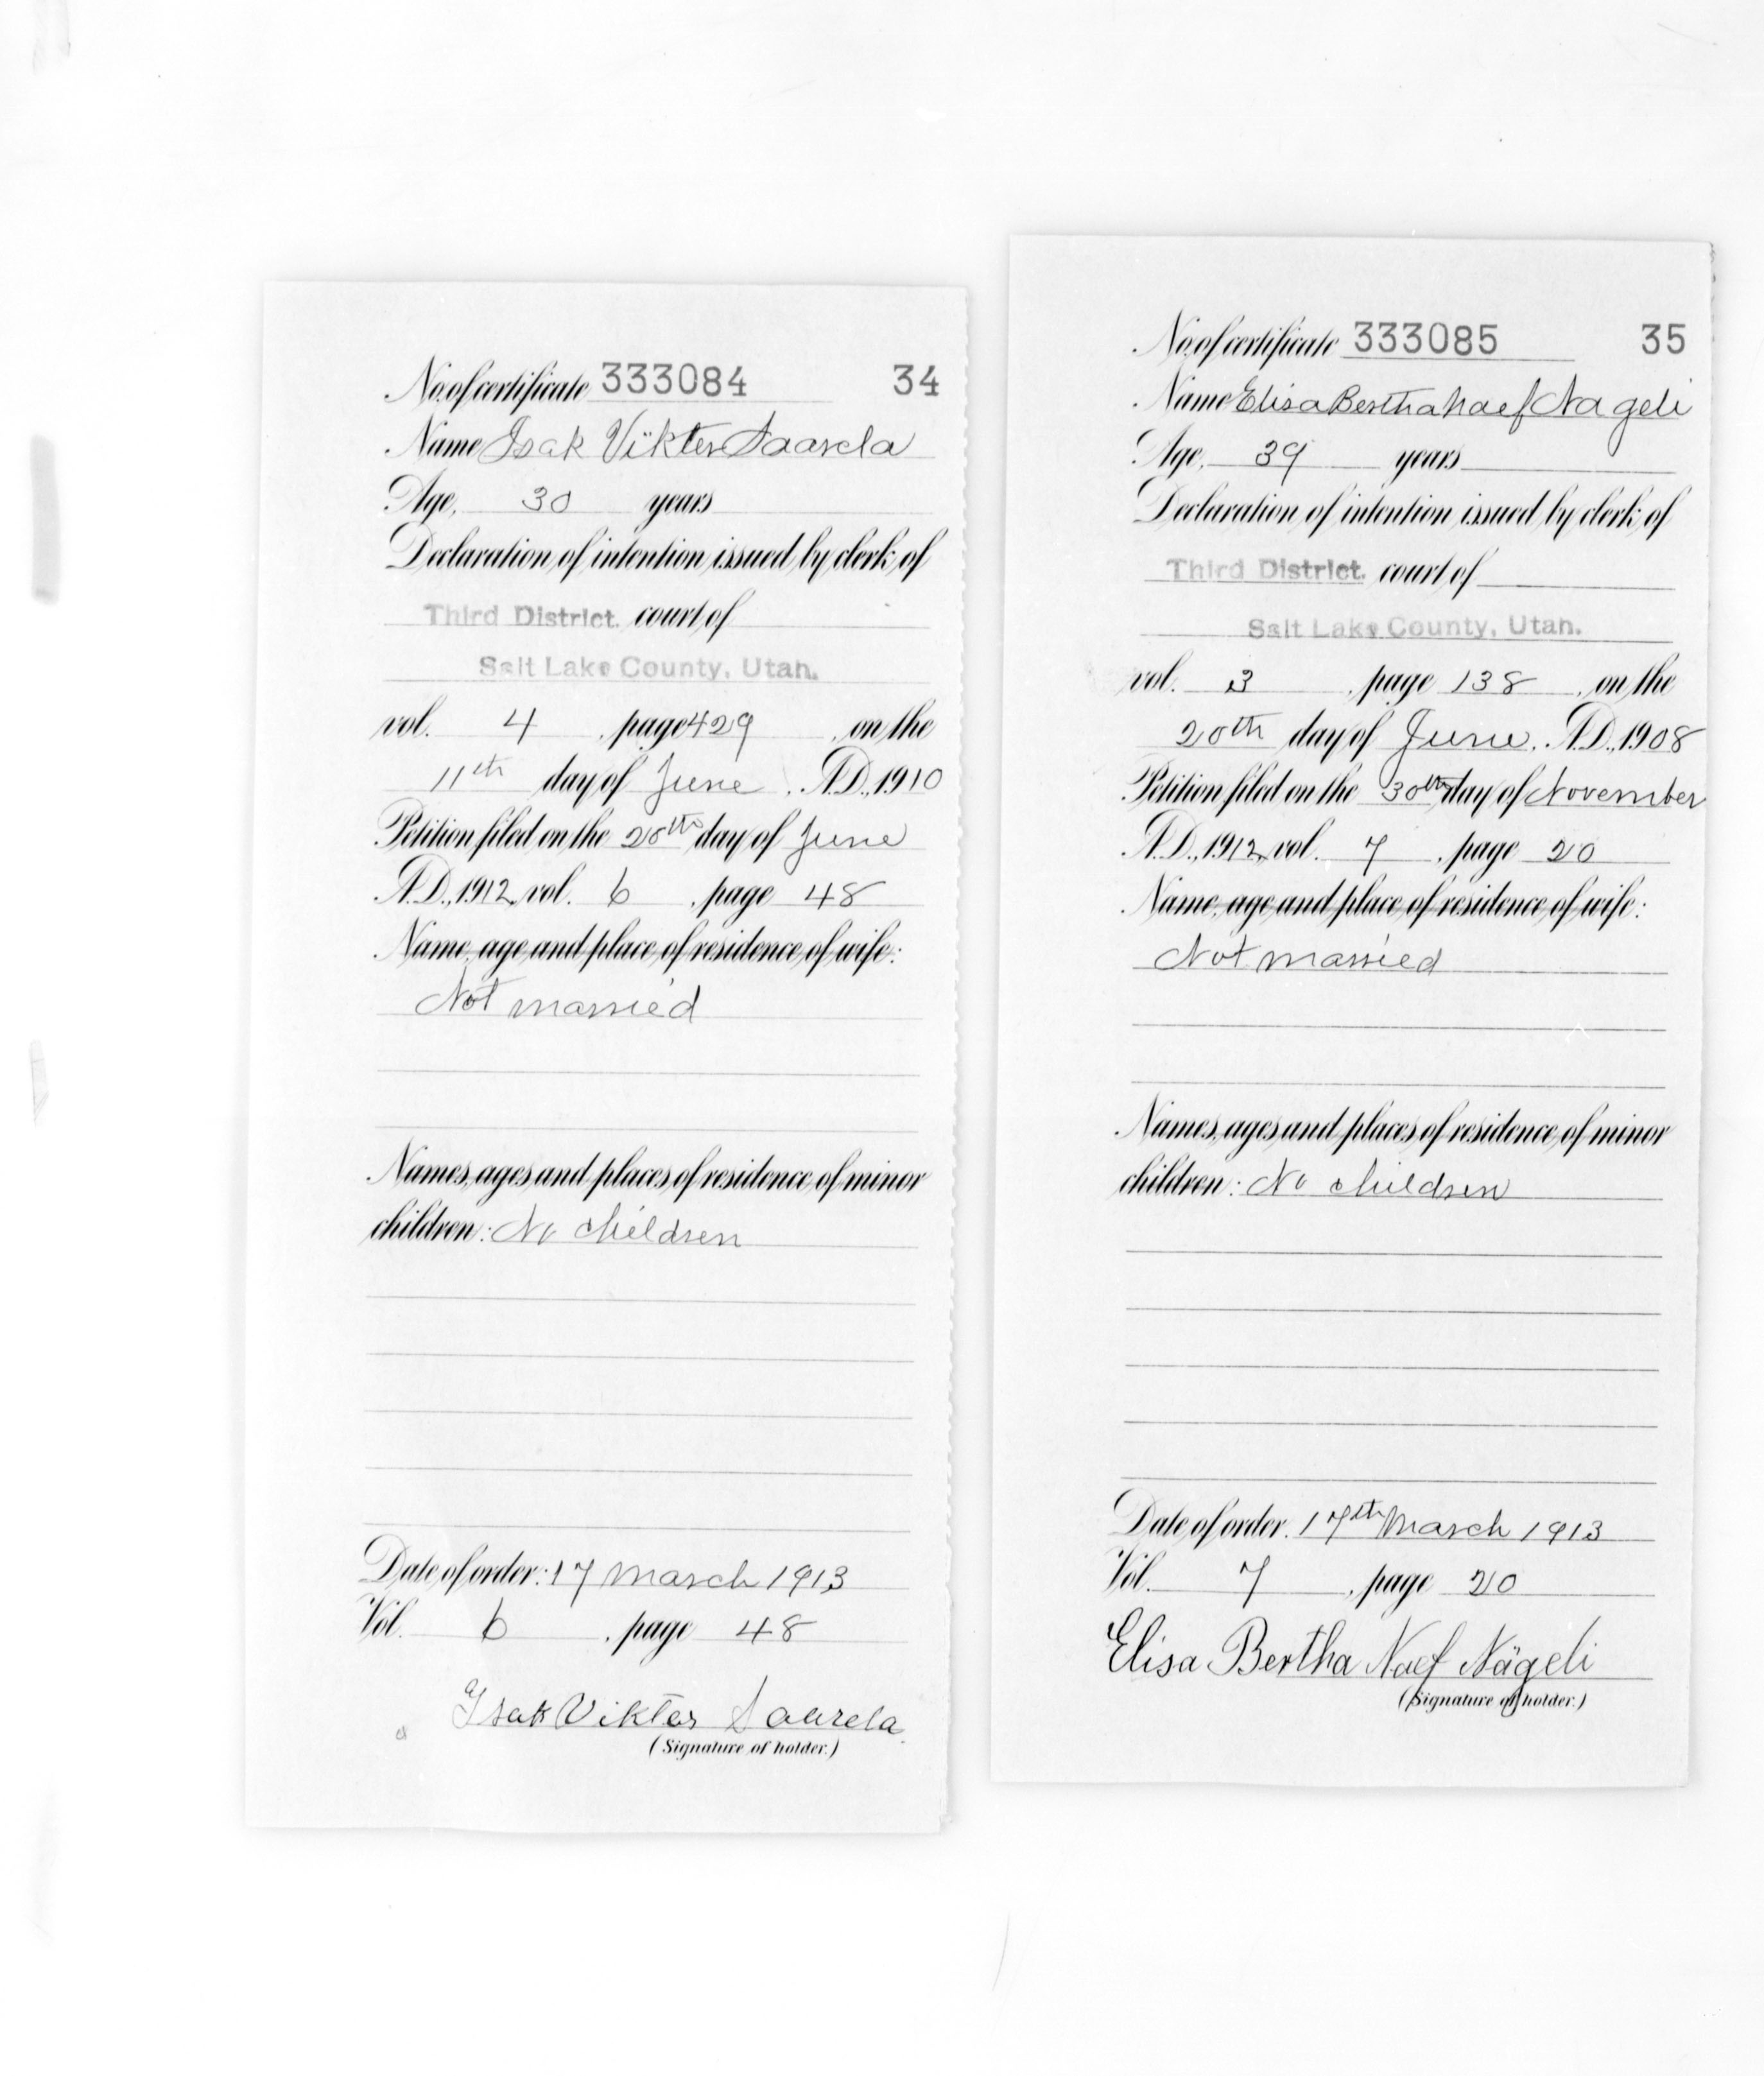 No. of certificate 333084 34
Name Isak Vikter Saarela
Age, 30 years
Declaration of intention issued by clerk of
Third District. court of
Salt Lake County, Utah.
vol. 4, page 429, on the
11th day of June, A.D., 1910
Petition filed on the 20th day of June
A.D., 1912, vol. 6, page 48
Name, age and place of residence of wife:
Not married
Names, ages and places of residence of minor
children: No children
Date of order: 17 March 1913
Vol. 6, page 48
Isak Viktor Saarela
(Signature of holder.)
No. of certificate 333085 35
Name Elisa Bertha Naef Nageli
Age, 39 years
Declaration of intention issued by clerk of
Third District. court of
Salt Lake County, Utah.
vol. 3, page 138, on the
20th day of June, A.D., 1908
Petition filed on the 30th day of November
A.D., 1912, vol. 7, page 20
Name, age and place of residence of wife:
Not married
Names, ages and places of residence of minor
children: No children
Date of order. 17th March 1913
Vol. 7, page 20
Elisa Bertha Naef Nägeli
(Signature of holder.)